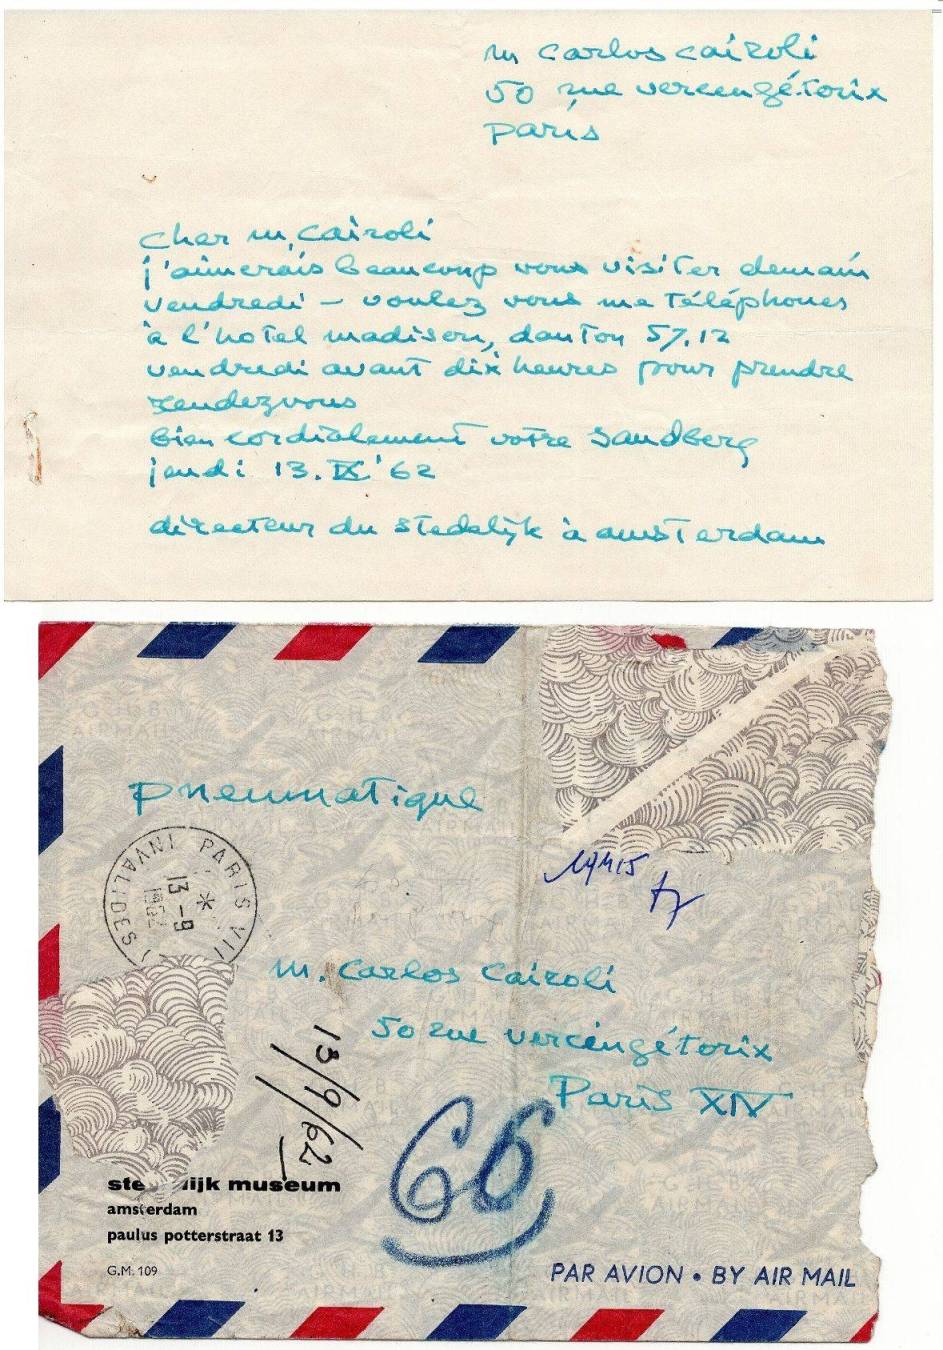 m carlos cairoli
50 rue vercengétorix
paris
cher m, cairoli
j'aimerais beaucoup vous visiter demain
vendredi – voulez vous me téléphoner
à l'hotel madison, danton 57.12
vendredi avant dix heures pour prendre
rendezvous
bien cordialement votre sandberg
jeudi 13.IX '62
directeur du stedelijk à amsterdam
pneumatique
PARIS VII
(INVALIDES)
13-9
1962
m. carlos cairoli
50 rue vercengétorix
Paris XIV
13/9/62
60
museum
amsterdam
paulus potterstraat 13
G.M. 109
PAR AVION • BY AIR MAIL